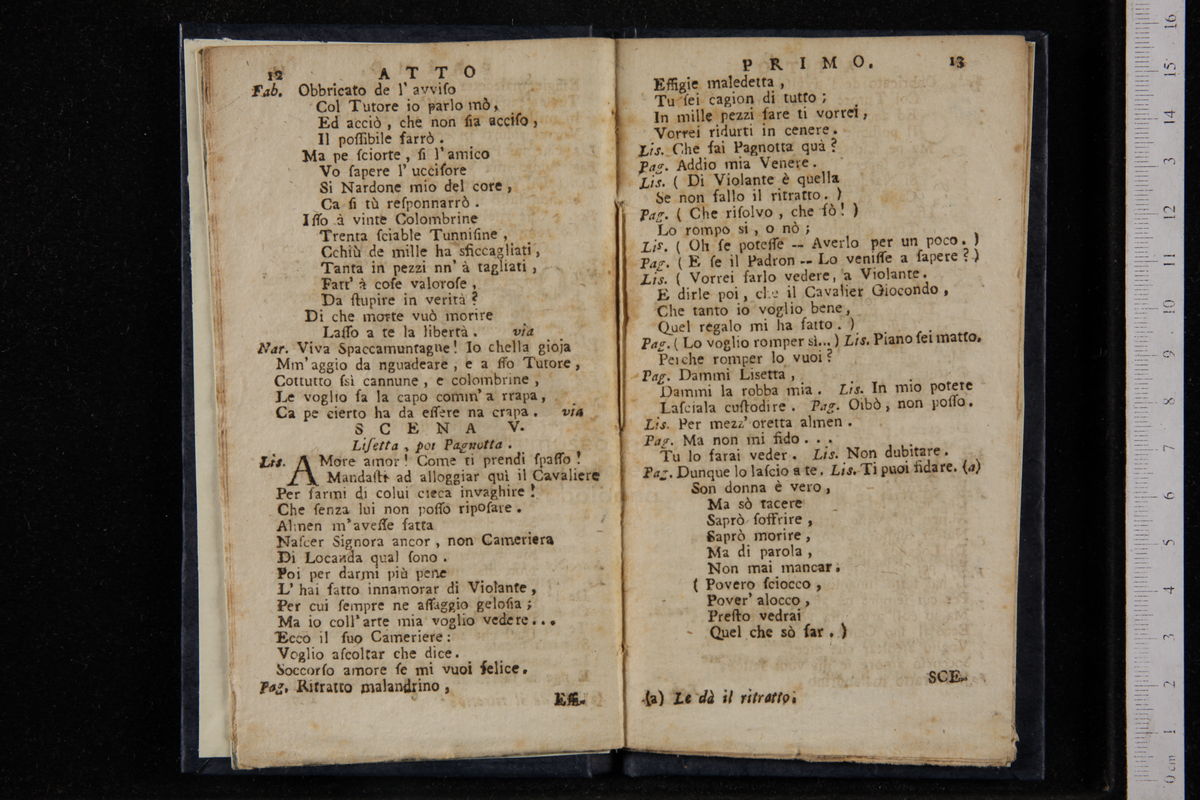 12 ATTO
Fab. Obbricato de l' avviſo
Col Tutore io parlo mò,
Ed acciò, che non ſia acciſo,
Il poſſibile farrò.
Ma pe ſciorte, ſi l' amico
Vo ſapere l' ucciſore
Si Nardone mio del core,
Ca ſi tù reſponnarrò.
Iſſo à vinte Colombrine
Trenta ſciable Tunniſine,
Cchiù de mille ha sficcagliati,
Tanta in pezzi nn' à tagliati,
Fatt' à coſe valoroſe,
Da ſtupire in verità?
Di che morte vuò morire
Laſſo a te la libertà. via
Nar. Viva Spaccamuntagne! Io chella gioja
Mm' aggio da nguadeare, e a ſſo Tutore,
Cottutto ſsì cannune, e colombrine,
Le voglio fa la capo comm' a rrapa,
Ca pe cierto ha da eſſere na crapa. via
SCENA V.
Liſetta, poi Pagnotta.
Lis. AMore amor! Come ti prendi ſpaſſo!
Mandaſti ad alloggiar quì il Cavaliere
Per farmi di colui cieca invaghire!
Che ſenza lui non poſſo ripoſare.
Almen m' aveſſe fatta
Naſcer Signora ancor, non Cameriera
Di Locanda qual ſono.
Poi per darmi più pene
L' hai fatto innamorar di Violante,
Per cui ſempre ne aſſaggio geloſia;
Ma io coll' arte mia voglio vedere...
Ecco il ſuo Cameriere:
Voglio aſcoltar che dice.
Soccorſo amore ſe mi vuoi felice.
Pag. Ritratto malandrino,
Effi-
PRIMO. 13
Effigie maledetta,
Tu ſei cagion di tutto;
In mille pezzi fare ti vorrei,
Vorrei ridurti in cenere.
Lis. Che fai Pagnotta quà?
Pag. Addio mia Venere.
Lis. ( Di Violante è quella
Se non fallo il ritratto. )
Pag. ( Che riſolvo, che fò! )
Lo rompo si, o nò;
Lis. ( Oh ſe poteſſe -- Averlo per un poco. )
Pag. ( E ſe il Padron -- Lo veniſſe a ſapere? )
Lis. ( Vorrei farlo vedere, a Violante.
E dirle poi, che il Cavalier Giocondo,
Che tanto io voglio bene,
Quel regalo mi ha fatto. )
Pag. ( Lo voglio romper sì... ) Lis. Piano ſei matto.
Perche romper lo vuoi?
Pag. Dammi Lisetta,
Dammi la robba mia. Lis. In mio potere
Laſciala cuſtodire. Pag. Oibò, non poſſo.
Lis. Per mezz' oretta almen.
Pag. Ma non mi fido...
Tu lo farai veder. Lis. Non dubitare.
Pag. Dunque lo laſcio a te. Lis. Ti puoi fidare. (a)
Son donna è vero,
Ma sò tacere
Saprò ſoffrire,
Saprò morire,
Ma di parola,
Non mai mancar.
( Povero ſciocco,
Pover' alocco,
Preſto vedrai
Quel che sò far. )
SCE-
(a) Le dà il ritratto.